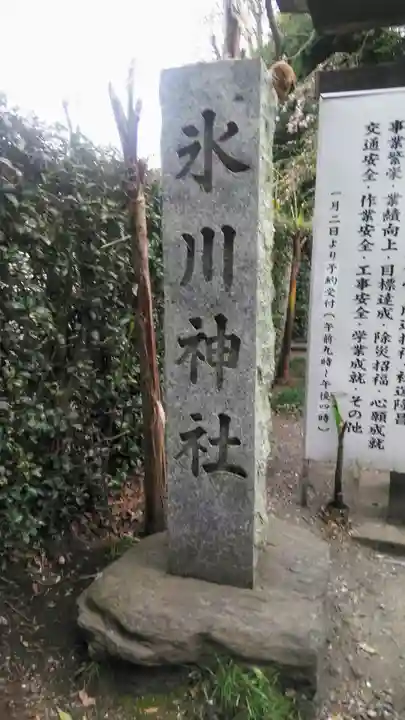 氷川神社
事業繁栄・業績向上・目標達成・除災招福・心願成就
交通安全・作業安全・工事安全・学業成就・その他
一月二日より予約受付(午前九時〜午後四時)